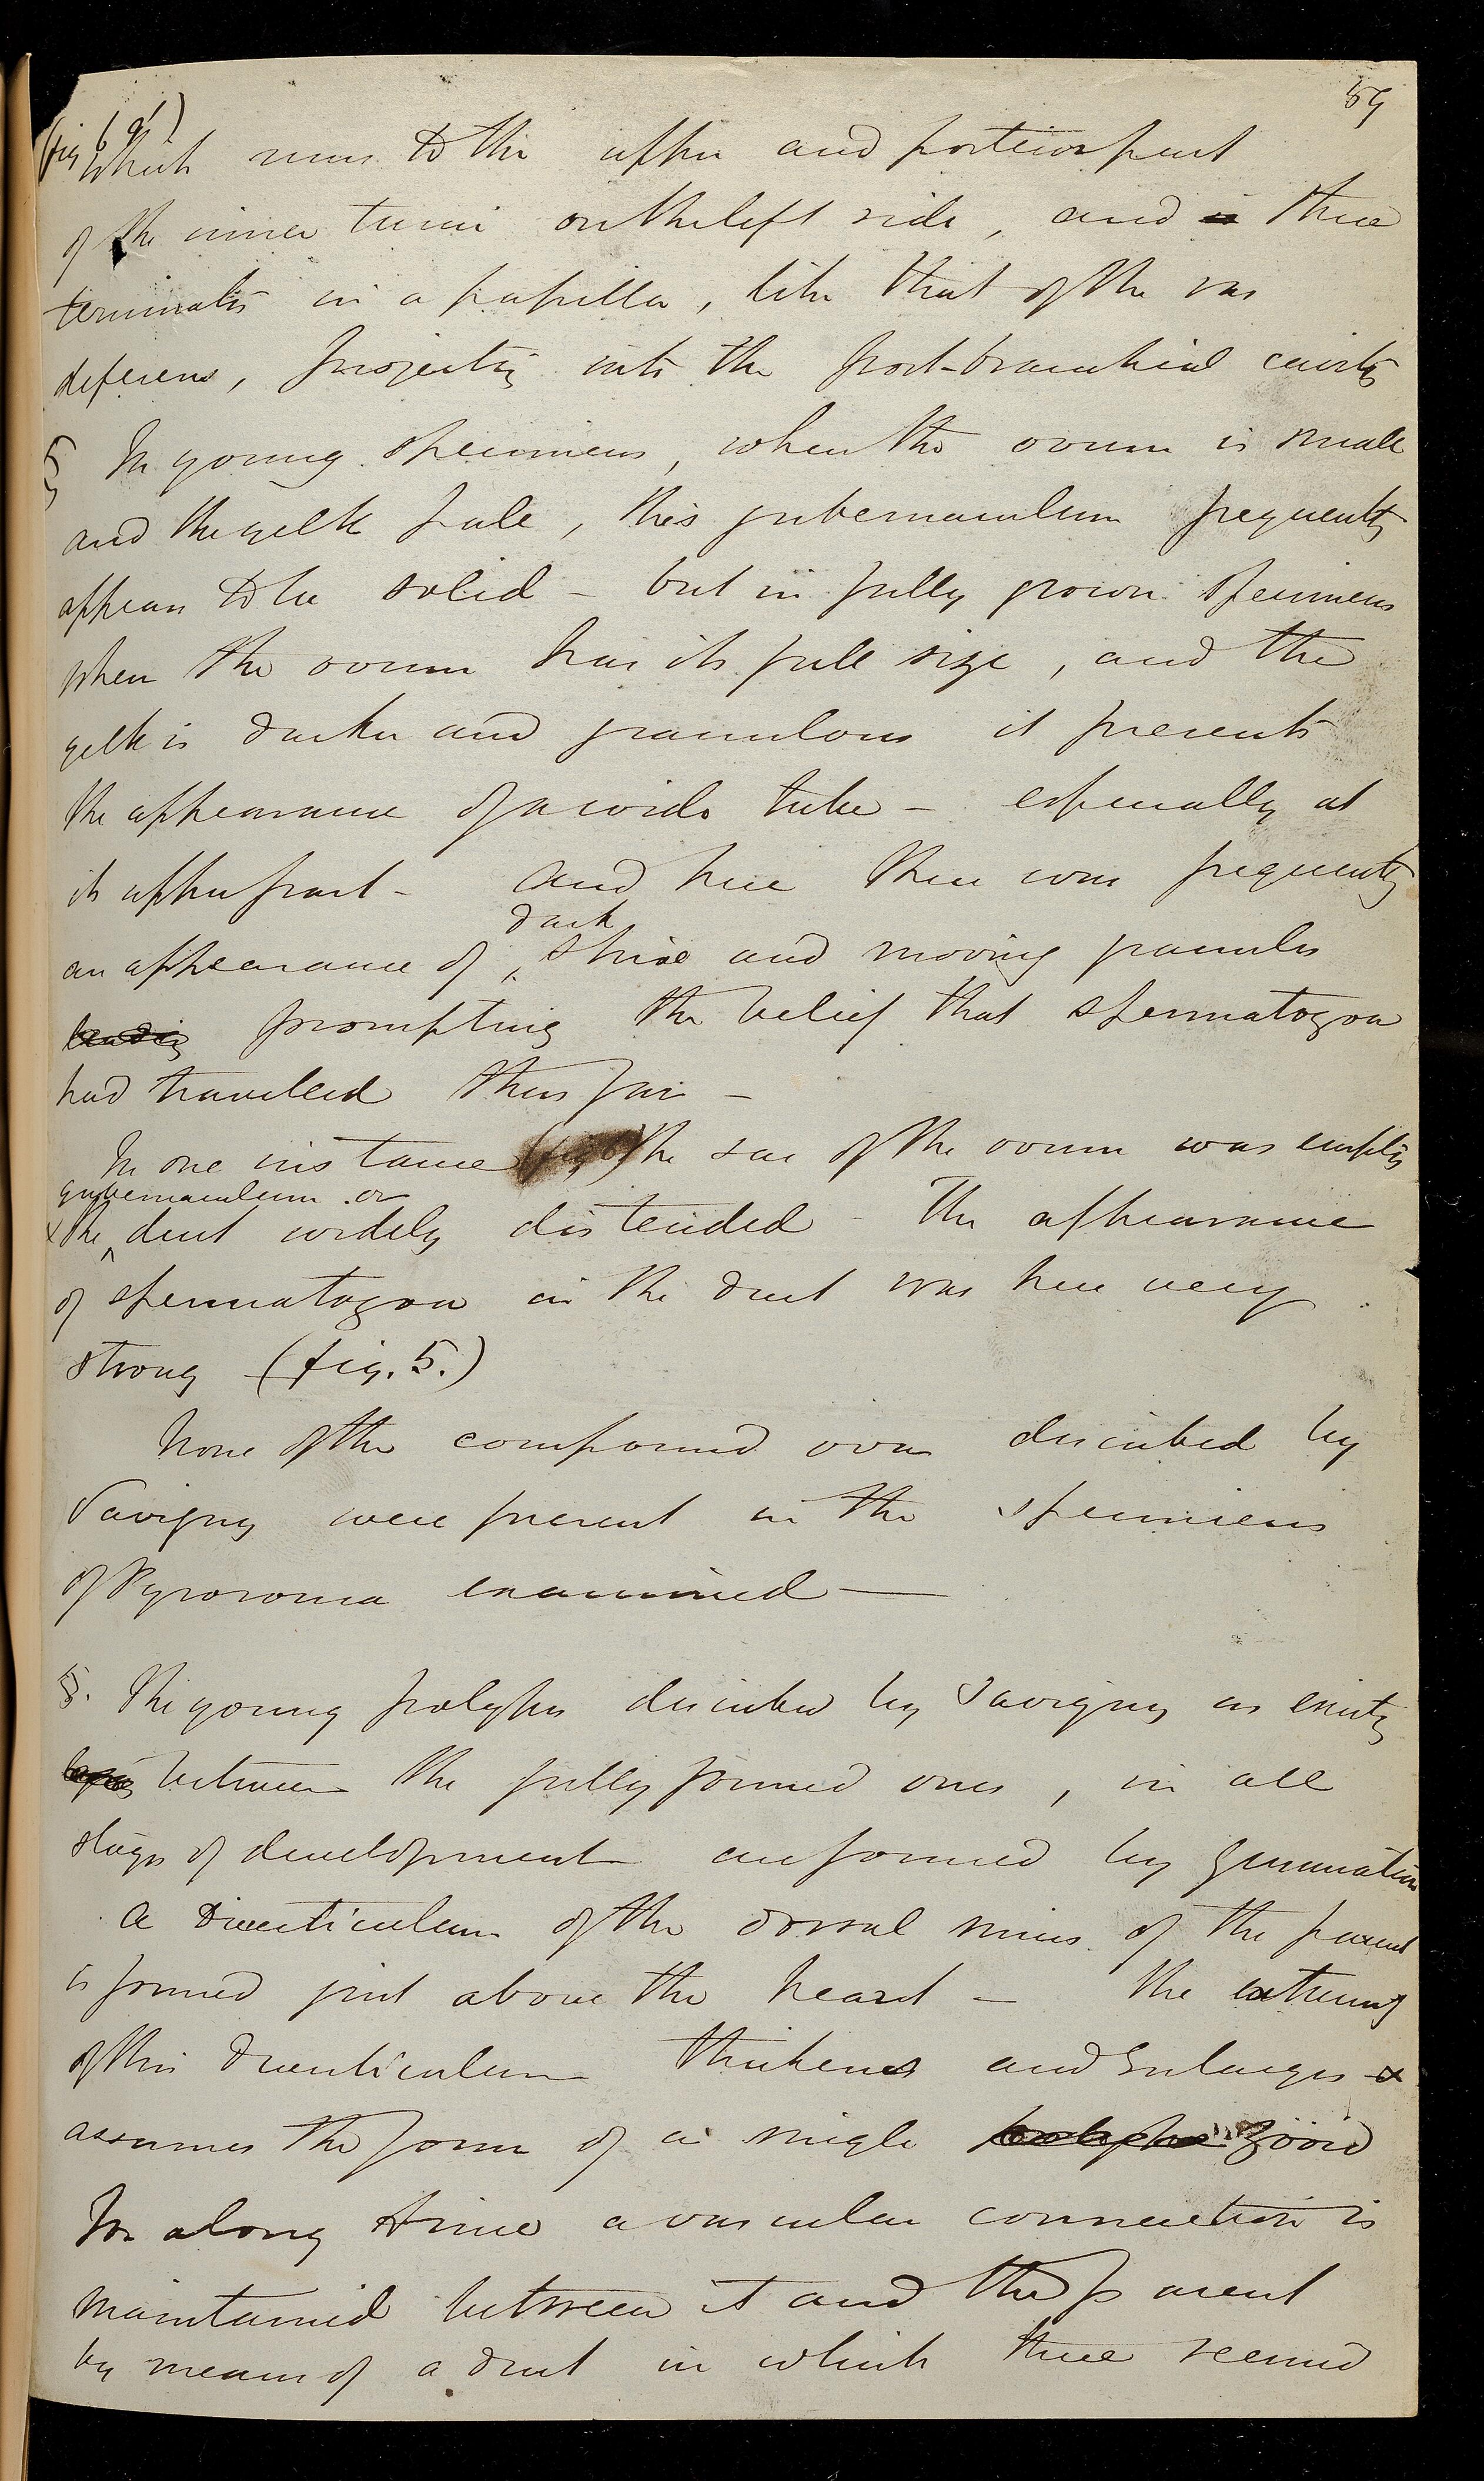 59
(fig 6 g')
which runs to the upper and posterior part
of the inner tunic on the left side, and is there
terminates in a papilla, like that of the vas
deferens, projecting into the post-branchial cavity
§ In young specimens, when the ovum is small
and the yelk pale, this gubernaculum frequently
appears to be solid – but in fully grown specimens
when the ovum has its full size, and the
yelk is darker and granulous it presents
the appearance of a wide tube – especially at
its upper part – and here there was frequently
dark
an appearance of striae and moving granules
leading prompting the belief that spermatozoa
had travelled thus far –
In one instance (fig 6) the sac of the ovum was empty
gubernaculum or
& the duct widely distended – The appearance
of spermatozoa in the duct was here very
strong (fig. 5.)
None of the compound ova described by
Savigny were present in the specimens
of Pyrosoma examined —
§. The young polypes described by Savigny as existing
between the fully formed ones, in all
stages of development are formed by gemmation
A Diverticulum of the dorsal sinus of the parent
is formed just above the heart – The extremity
of this diverticulum thickens and enlarges &
assumes the form of a single polype "zöoid
For a long time a vascular connection is
maintained between it and the parent
by means of a duct in which there seemed